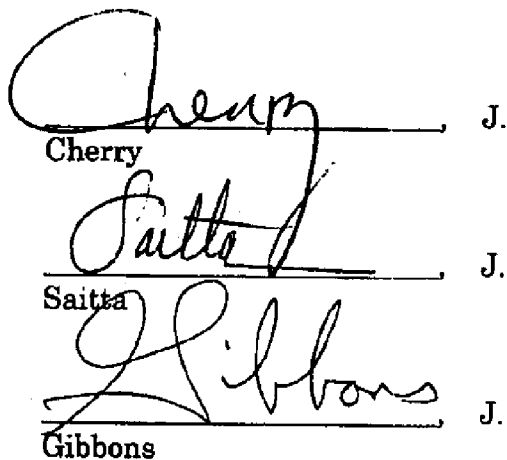 Cherry, J.
Cherry
Saitta, J.
Saitta
Gibbons, J.
Gibbons